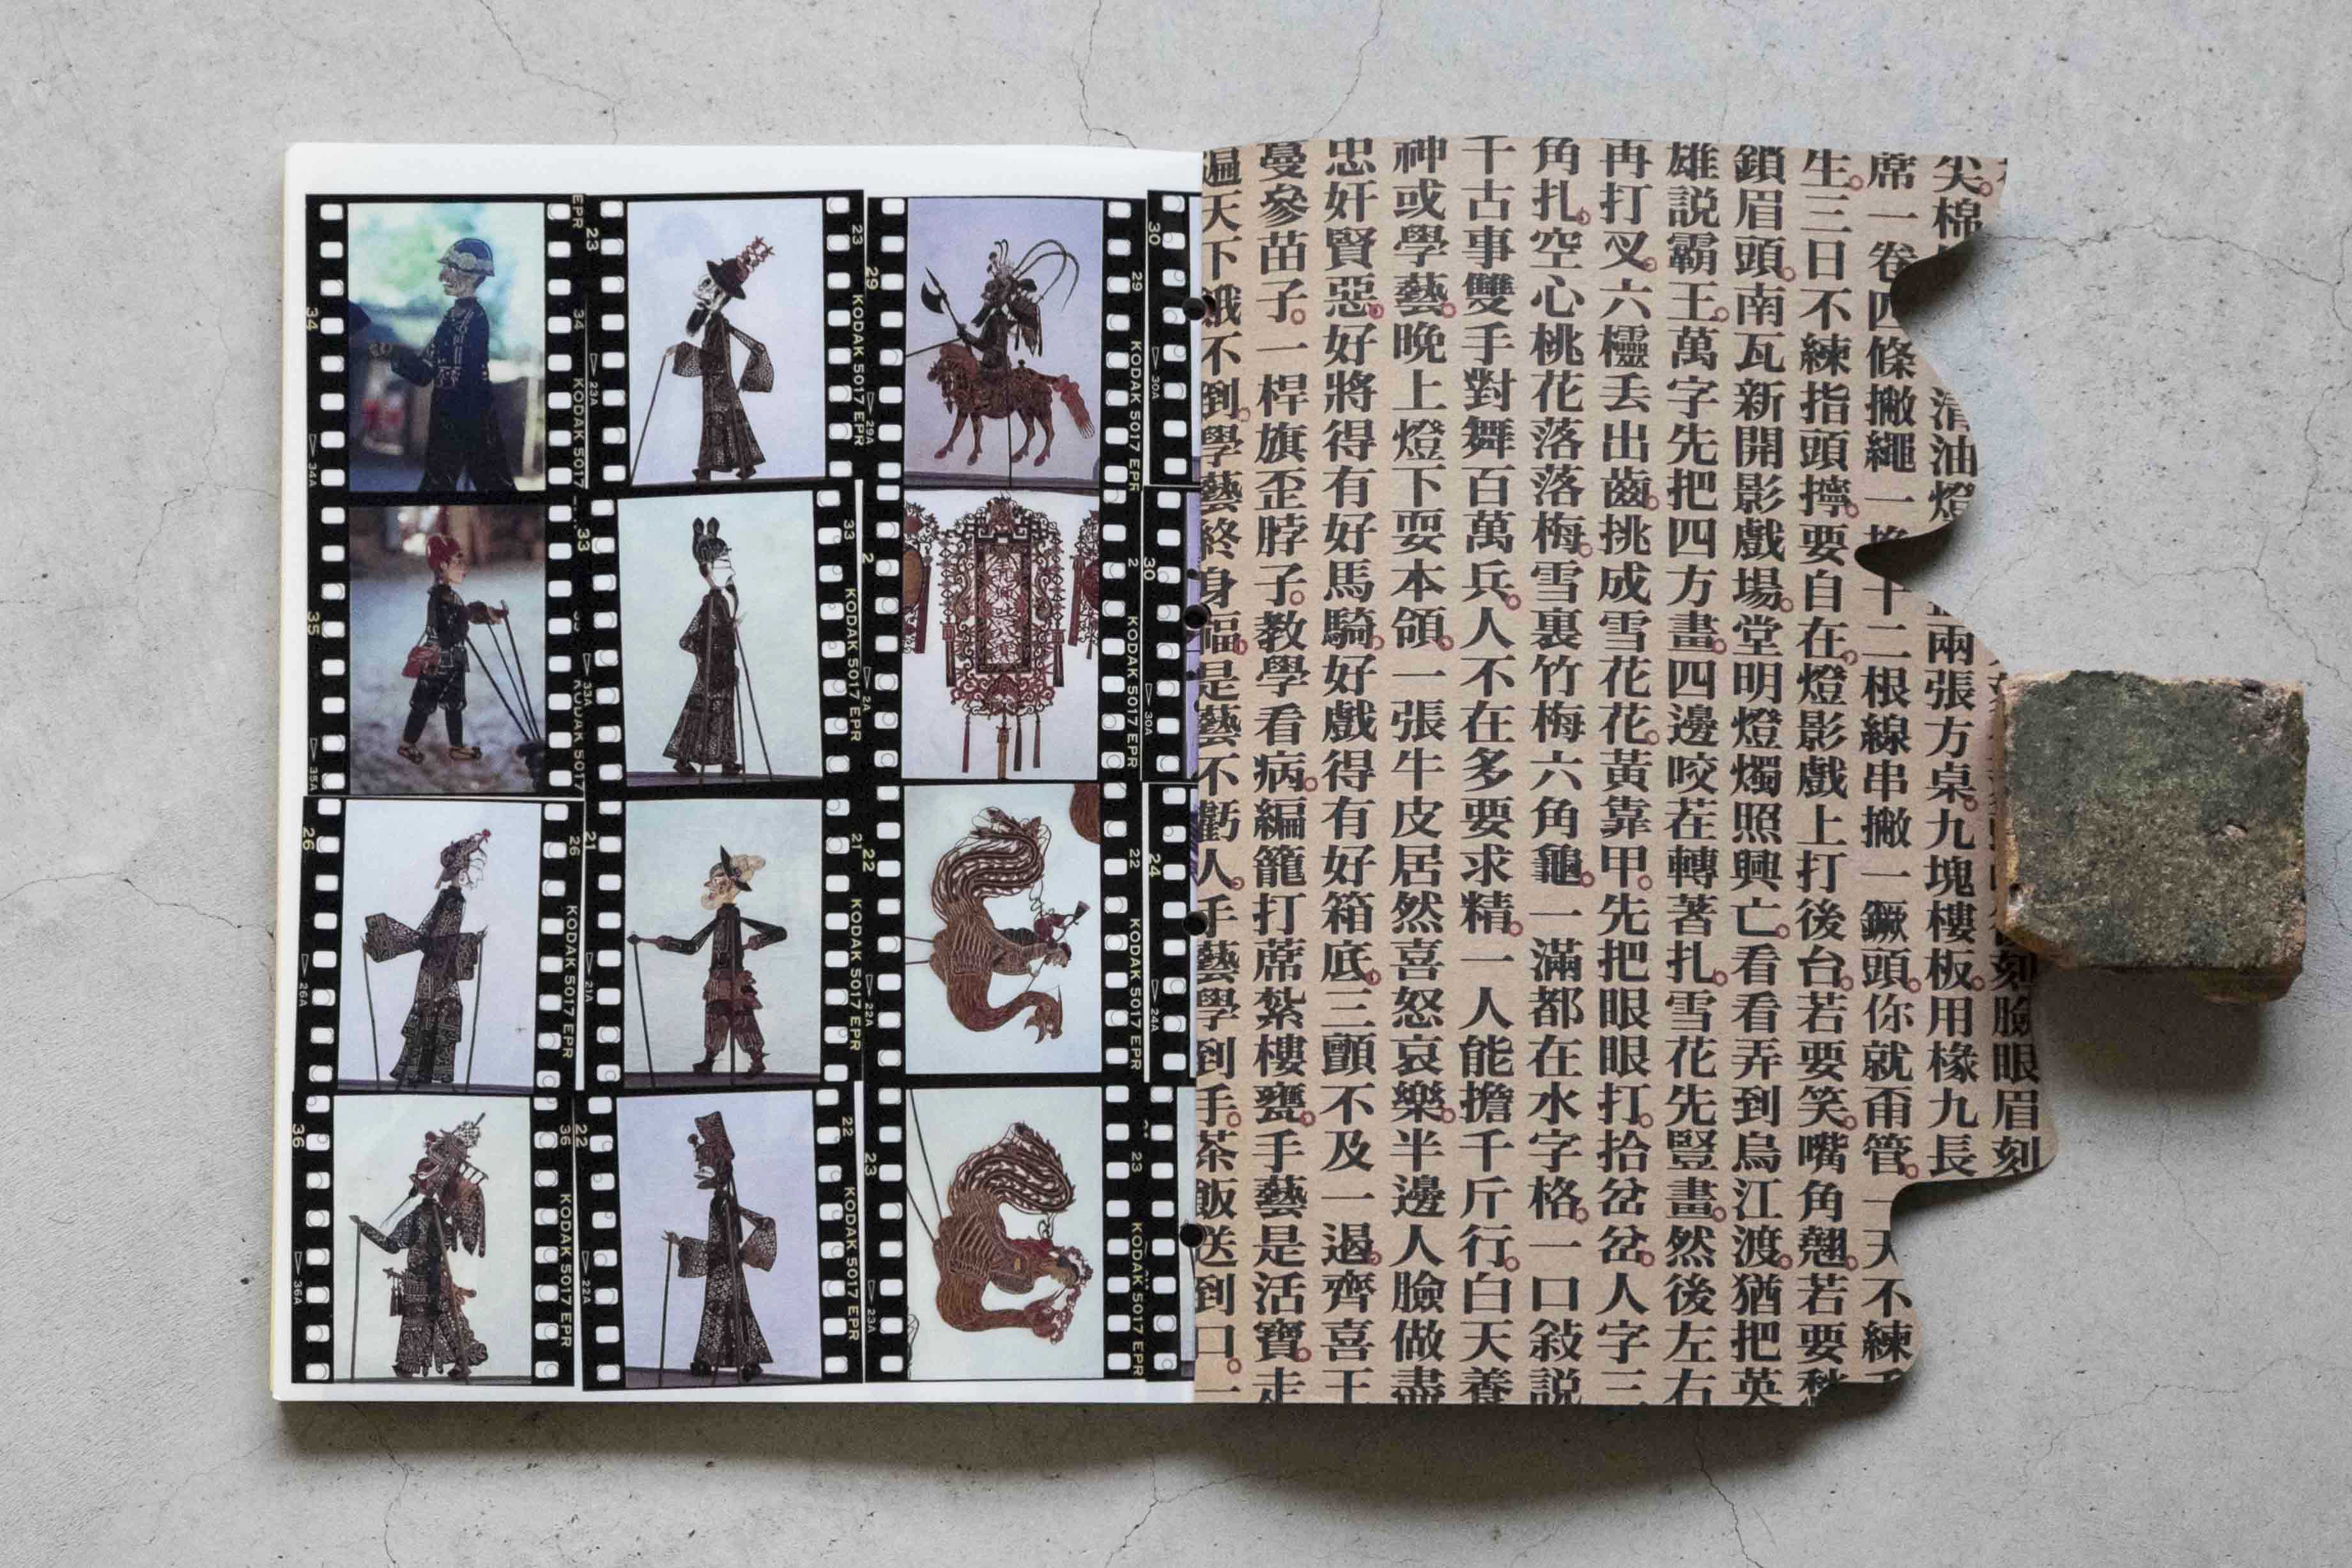 34
34A
EPR
34
KODAK 5017
23
23A
23
KODAK 5017 EPR
29
29A
29
KODAK 5017 EPR
30
30A
35
35A
33
33A
KODAK 5017
33
KODAK 5017 EPR
2
2A
2
KODAK 5017 EPR
30
30A
26
26A
26
KODAK 5017 EPR
21
21A
21
KODAK 5017 EPR
22
22A
22
KODAK 5017 EPR
24
24A
36
36A
36
KODAK 5017 EPR
22
22A
22
KODAK 5017 EPR
23
23A
23
KODAK 5017 EPR
刻臉眼眉刻
尖。棉
清油燈
兩張方桌。九塊樓板。用椽九長
席一卷四條撇繩一
十二根線串撇一鐝頭。你就甭管。一天不練
生。三日不練指頭擰。要自在。燈影戲上打後台。若要笑。嘴角翹。若要愁
鎖眉頭。南瓦新開影戲場。堂明燈燭照興亡。看看弄到烏江渡。猶把英
雄説霸王。萬字先把四方畫。四邊咬茬轉著扎。雪花先豎畫。然後左右
再打叉。六欞丢出齒。挑成雪花花。黃靠甲。先把眼眼打。拾岔岔。人字三
角扎。空心桃花落落梅。雪裏竹梅六角龜。一滿都在水字格。一口敍説
千古事雙手對舞百萬兵。人不在多要求精。一人能擔千斤行。白天養
神或學藝。晚上燈下耍本領。一張牛皮居然喜怒哀樂。半邊人臉做盡
忠奸賢惡。好將得有好馬騎。好戲得有好箱底。三顫不及一遏。齊喜王
蔓參苗子。一桿旗歪脖子。教學看病。編籠打蓆紮樓甕。手藝是活寶。走
遍天下餓不倒。學藝終身福。是藝不虧人。手藝學到手。茶飯送到口。一